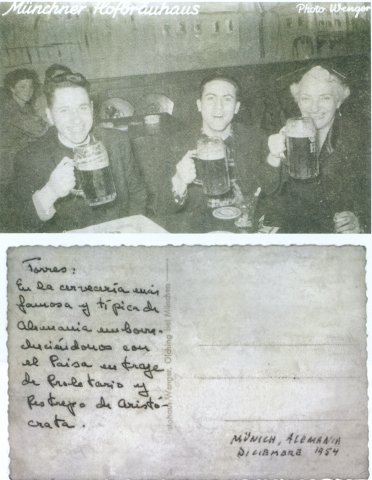 Münchner Hofbräuhaus
Photo Wenger
Torres:
En la cervecería más
famosa y típica de
Alemania emborra-
chándonos con
el Paisa en traje
de Proletario y
Restrepo de Aristo-
crata.
MÜNICH, ALEMANIA
DICIEMBRE 1954